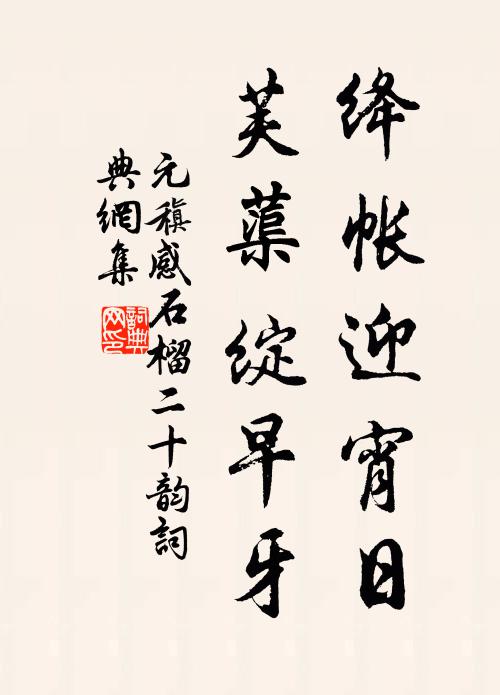 绛帐迎宵日
芙蕖綻早牙
元稹感石榴二十韵詞
典網集
詞典
网印